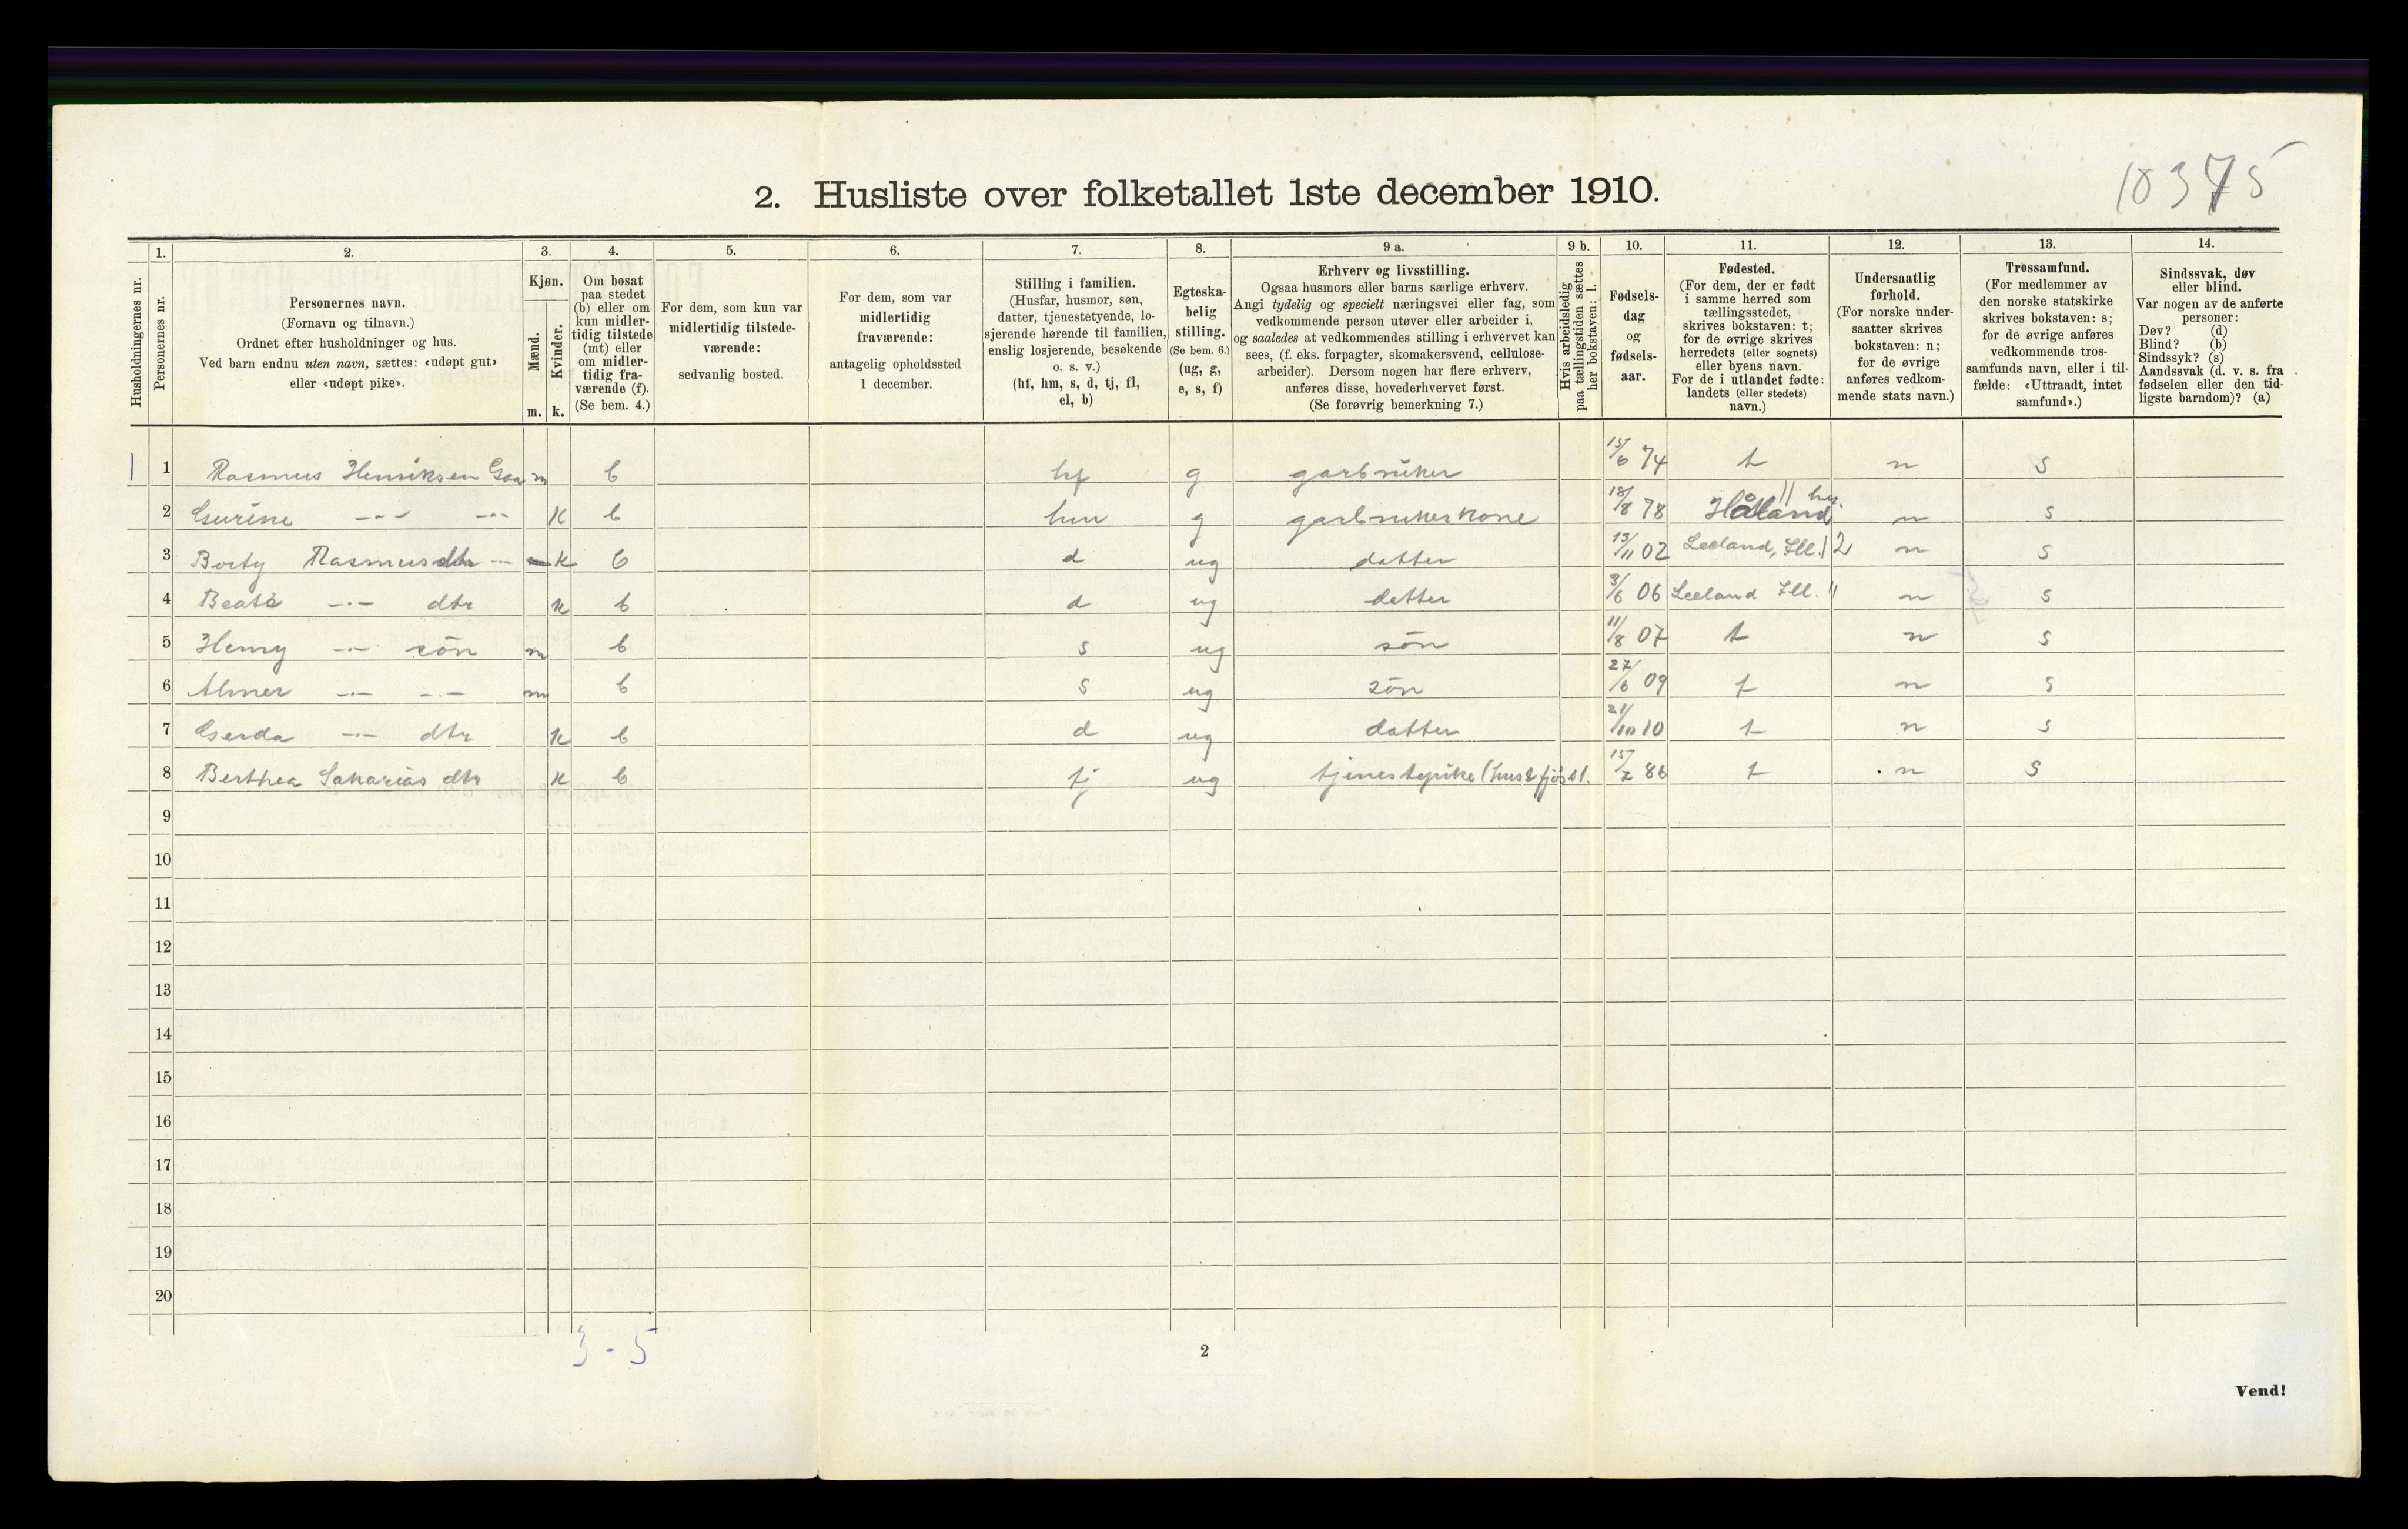 10375
2. Husliste over folketallet 1ste december 1910.
Husholdningernes nr.
1.
Personernes nr.
2.
Personernes navn.
(Fornavn og tilnavn.)
Ordnet efter husholdninger og hus.
Ved barn endnu uten navn, sættes: «udøpt gut»
eller «udøpt pike».
3.
Kjøn.
Mænd.
Kvinder.
m. k.
4.
Om bosat
paa stedet
(b) eller om
kun midler-
tidig tilstede
(mt) eller
om midler-
tidig fra-
værende (f).
(Se bem. 4.)
5.
For dem, som kun var
midlertidig tilstede-
værende:
sedvanlig bosted.
6.
For dem, som var
midlertidig
fraværende:
antagelig opholdssted
1 december.
7.
Stilling i familien.
(Husfar, husmor, søn,
datter, tjenestetyende, lo-
sjerende hørende til familien,
enslig losjerende, besøkende
o. s. v.)
(hf, hm, s, d, tj, fl,
el, b)
8.
Egteska-
belig
stilling.
(Se bem. 6.)
(ug, g,
e, s, f)
9 a.
Erhverv og livsstilling.
Ogsaa husmors eller barns særlige erhverv.
Angi tydelig og specielt næringsvei eller fag, som
vedkommende person utøver eller arbeider i,
og saaledes at vedkommendes stilling i erhvervet kan
sees, (f. eks. forpagter, skomakersvend, cellulose-
arbeider). Dersom nogen har flere erhverv,
anføres disse, hovederhvervet først.
(Se forøvrig bemerkning 7.)
9 b.
Hvis arbeidsledig
paa tællingstiden sættes
her bokstaven: l.
10.
Fødsels-
dag
og
fødsels-
aar.
11.
Fødested.
(For dem, der er født
i samme herred som
tællingsstedet,
skrives bokstaven: t;
for de øvrige skrives
herredets (eller sognets)
eller byens navn.
For de i utlandet fødte:
landets (eller stedets)
navn.)
12.
Undersaatlig
forhold.
(For norske under-
saatter skrives
bokstaven: n;
for de øvrige
anføres vedkom-
mende stats navn.)
13.
Trossamfund.
(For medlemmer av
den norske statskirke
skrives bokstaven: s;
for de øvrige anføres
vedkommende tros-
samfunds navn, eller i til-
fælde: «Uttraadt, intet
samfund».)
14.
Sindssvak, døv
eller blind.
Var nogen av de anførte
personer:
Døv? (d)
Blind? (b)
Sindssyk? (s)
Aandssvak (d. v. s. fra
fødselen eller den tid-
ligste barndom)? (a)
1 1 Rasmus Henriksen m b hf g garbruker 15/6 74 t n s
2 Gurine --- --- k b hm g garbrukerkone 18/8 78 Håland n s
3 Rasmusdtr --- k b d ug datter 13/11 02 n s
4 Beate --- dtr k b d ug datter 3/6 06 n s
5 Henry --- søn m b s ug søn 11/8 07 t n s
6 Almer --- --- m b s ug søn 27/6 09 t n s
7 Gerda --- dtr k b d ug datter 21/10 10 t n s
8 Berthea Sakarias dtr k b tj ug tjenestepike (hus & fjøs st. 15/2 86 t n s
9
10
11
12
13
14
15
16
17
18
19
20
3 - 5
2
Vend!